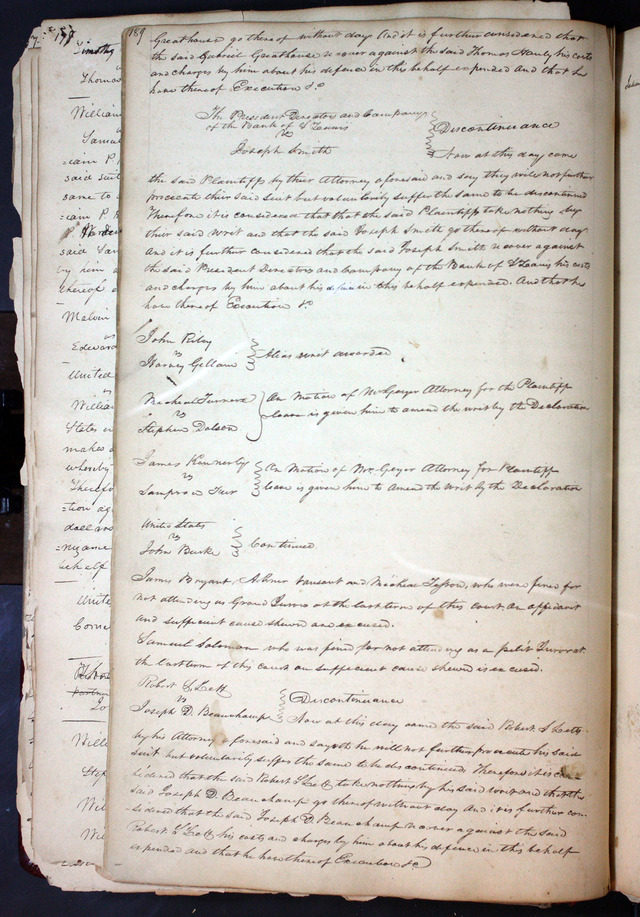 189
Greathouse go thereof without day And it is further considered that
the said Gabriel Greathouse recover against the said Thomas Hanly his costs
and charges by him about his defence in this behalf expended and that he
have thereof Execution &c
The President Directors and Company
of the Bank of St Louis
vs
Joseph Smith
Discontinuance
Now at this day came
the said Plaintiffs by their Attorney aforesaid and say they will not further
prosecute their said suit but voluntarily suffer the same to be discontinued
Therefore it is considered that that the said Plaintiffs take nothing by
their said writ and that the said Joseph Smith go thereof without day
And it is further considered that the said Joseph Smith recover against
the said President Directors and Company of the Bank of St Louis his costs
and charges by him about his defence in this behalf expended. And that he
have thereof Execution &c
John Riley
vs
Harvey Gillam
Alias writ awarded
Micheal Turners
vs
Stephen Dolson
On Motion of Mr Geyer Attorney for the Plaintiff
leave is given him to amend the writ by the Declaration
James Kennerly
vs
On Motion of Mr Geyer Attorney for Plaintiff
leave is given him to amend the writ by the Declaration
United States
vs
John Burke
Continued
James Bryant, Abner Vansant and Micheal Tesson, who were fined for
not attending as Grand Jurors at the last term of this court on affidavit
and sufficient cause shewn are excused.
Samuel Solomon who was fined for not attending as a petit Juror at
the last term of this court on sufficient cause shewed is excused.
Robert S Lett
vs
Joseph D. Beauchamp
Discontinuance
Now at this day came the said Robert S Lett
by his Attorney aforesaid and sayeth he will not further prosecute his said
suit but voluntarily suffers the same to be discontinued Therefore it is con
sidered that the said Robert S Lett take nothing by his said writ and that the
said Joseph D. Beauchamp go thereof without day and it is further con
sidered that the said Joseph D. Beauchamp recover against the said
Robert S Lett his costs and charges by him about his defence in this behalf
expended and that he have thereof Execution &c
Timothy
Thomas
William
said suit
same to
said Sam
by him
thereof
Melvin
vs
Edward
United
William
States
makes
whereby
Therefore
behalf
United
Will
Step
Will
Will